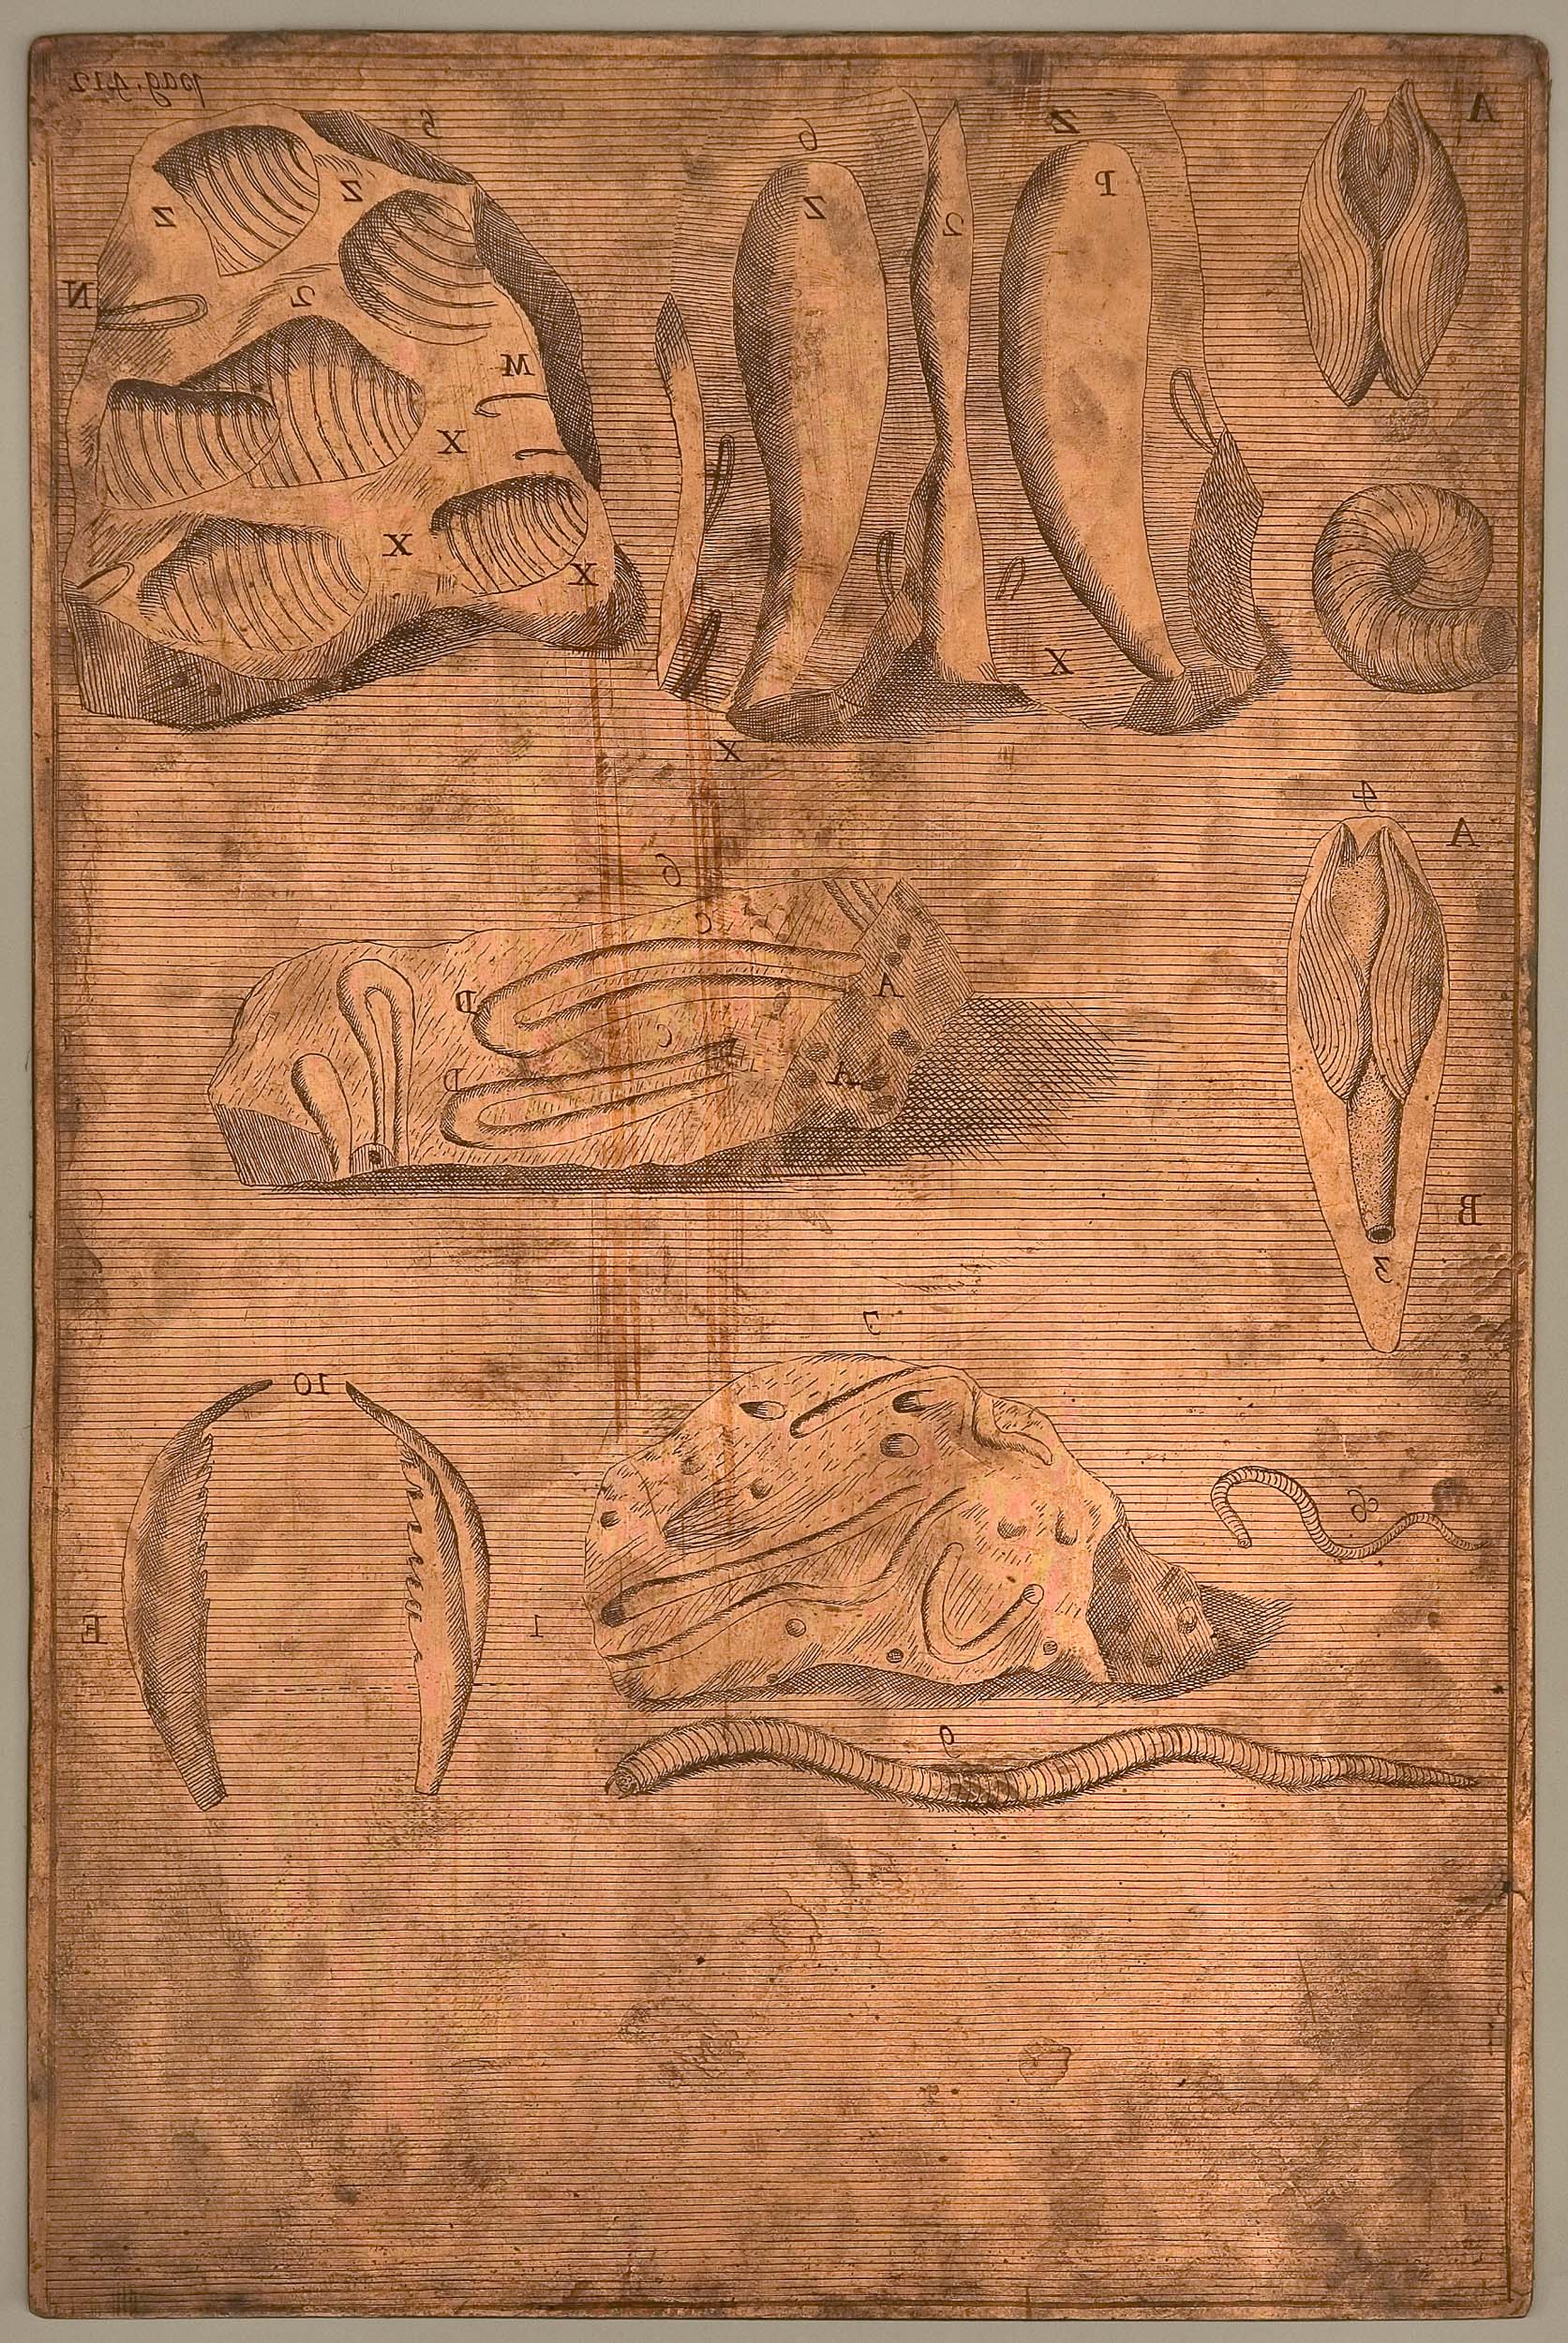 pag. 412
A
5
6
Z
Z
Z
Z
P
2
N
2
M
X
X
X
X
X
4
A
6
C
A
D
C
D
A
B
3
7
10
8
E
1
9